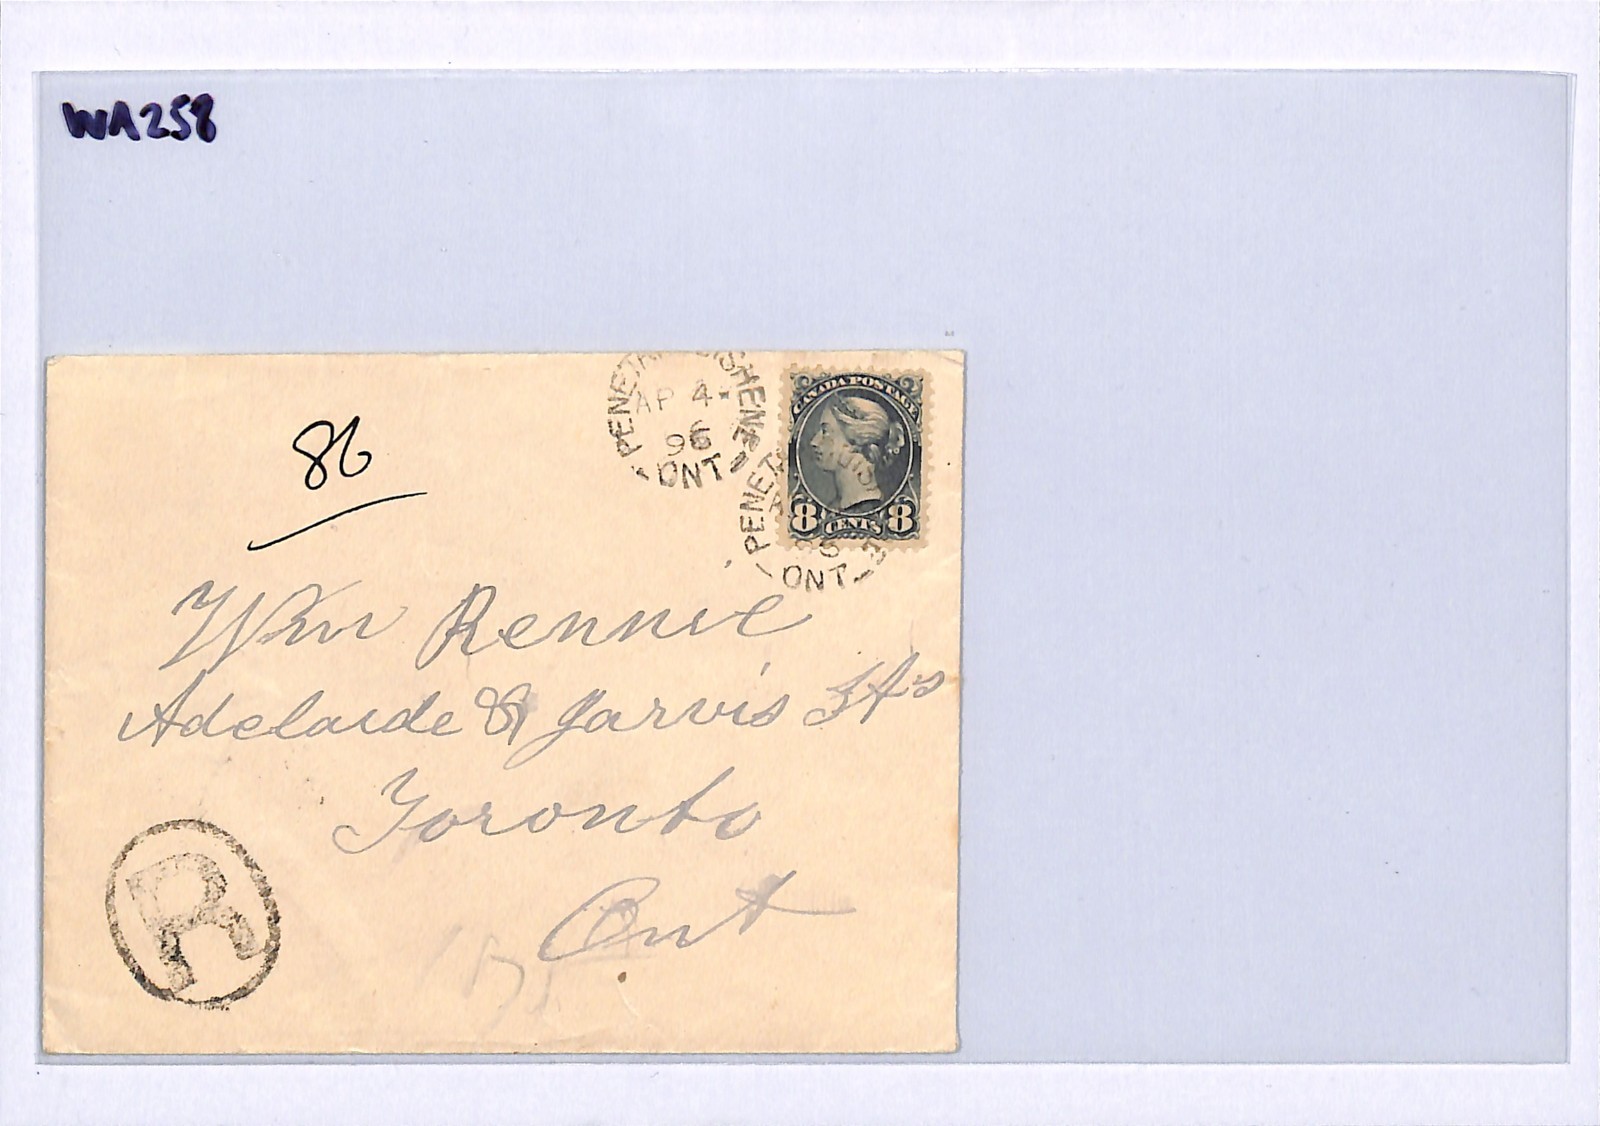 WA258
86
PENETANGUISHENE
AP 4
96
ONT
CANADA POSTAGE
8 CENTS 8
PENET
ONT
Wm Rennie
Adelaide & Jarvis Sts
Toronto
Ont
R